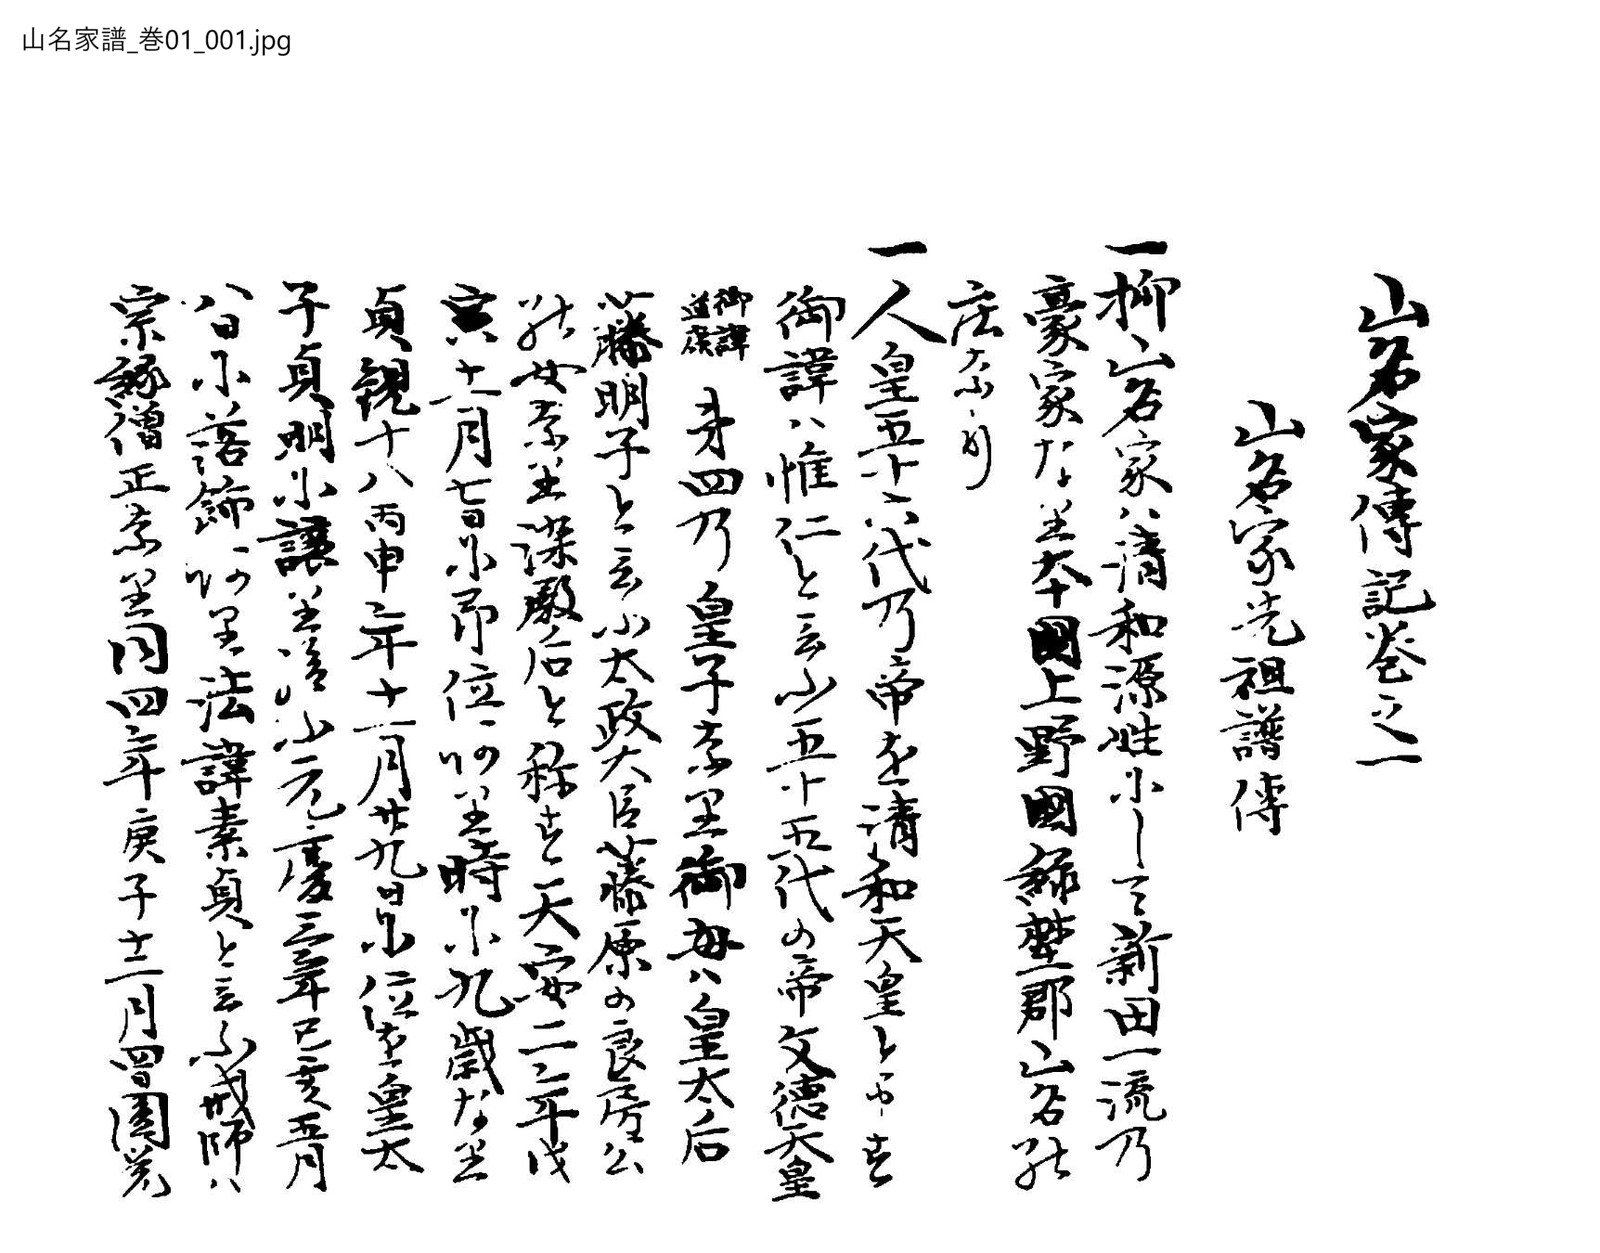 山名家譜_巻01_001.jpg
山名家傳記巻之一
山名家先祖譜傳
一抑山名家ハ清和源姓尓し天新田一流乃
豪家な里本國上野國緑埜郡山名能
庄奈り
一人皇五十六代乃帝を清和天皇と申す
御諱ハ惟仁と云ふ五十五代の帝文徳天皇
御諱道康第四乃皇子奈里御母ハ皇太后
藤明子と云ふ太政大臣藤原の良房公
能女奈里染殿后と称す天安二年戊
寅十一月七日尓即位阿里時尓九歳な里
貞観十八丙申年十一月廿九日尓位を皇太
子貞明尓譲里給ふ元慶三年己亥五月
八日尓落飾阿里法諱素貞と云ふ戒師ハ
宗叡僧正奈里同四年庚子十二月四日圓覚